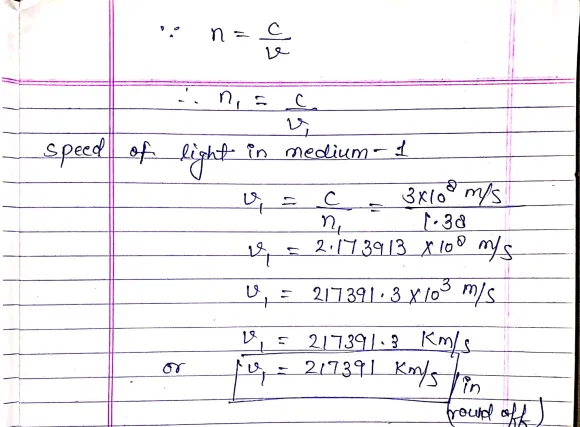 ∵ n = c/v
∴ n₁ = c/v₁
speed of light in medium-1
v₁ = c/n₁ = 3×10⁸ m/s / 1.38
v₁ = 2.173913 × 10⁸ m/s
v₁ = 217391.3 × 10³ m/s
v₁ = 217391.3 Km/s
or v₁ = 217391 Km/s in
(round off)